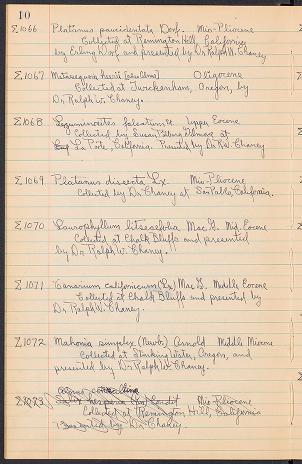 10
Σ1066 Platanus paucidentata Dorf. Mio-Pliocene
Collected at Remington Hill, California
by Erling Dorf and presented by Dr Ralph W. Chaney
Σ1067 Metasequoia heerii Oligocene
Collected at Twickenham, Oregon, by
Dr. Ralph W. Chaney.
Σ1068 Leguminosites falcatum Upper Eocene
Collected by Susan Potbury at
La Porte, California. Presented by Dr R.W. Chaney
Σ1069 Platanus dissecta Lx. Mio-Pliocene
Collected by Dr. Chaney at San Pablo, California.
Σ1070 Laurophyllum litseaefolia Mac G. Mid. Eocene
Collected at Chalk Bluffs and presented
by Dr. Ralph W. Chaney.
Σ1071 Canarium californicum Mac G. Middle Eocene
Collected at Chalk Bluffs and presented by
Dr Ralph W. Chaney.
Σ1072 Mahonia simplex (Newb.) Arnold Middle Miocene
Collected at Stinking Water, Oregon, and
presented by Dr. Ralph W. Chaney.
Σ1073 hesperia Mio-Pliocene
Collected at Remington Hill, California
Presented by Dr. Chaney.